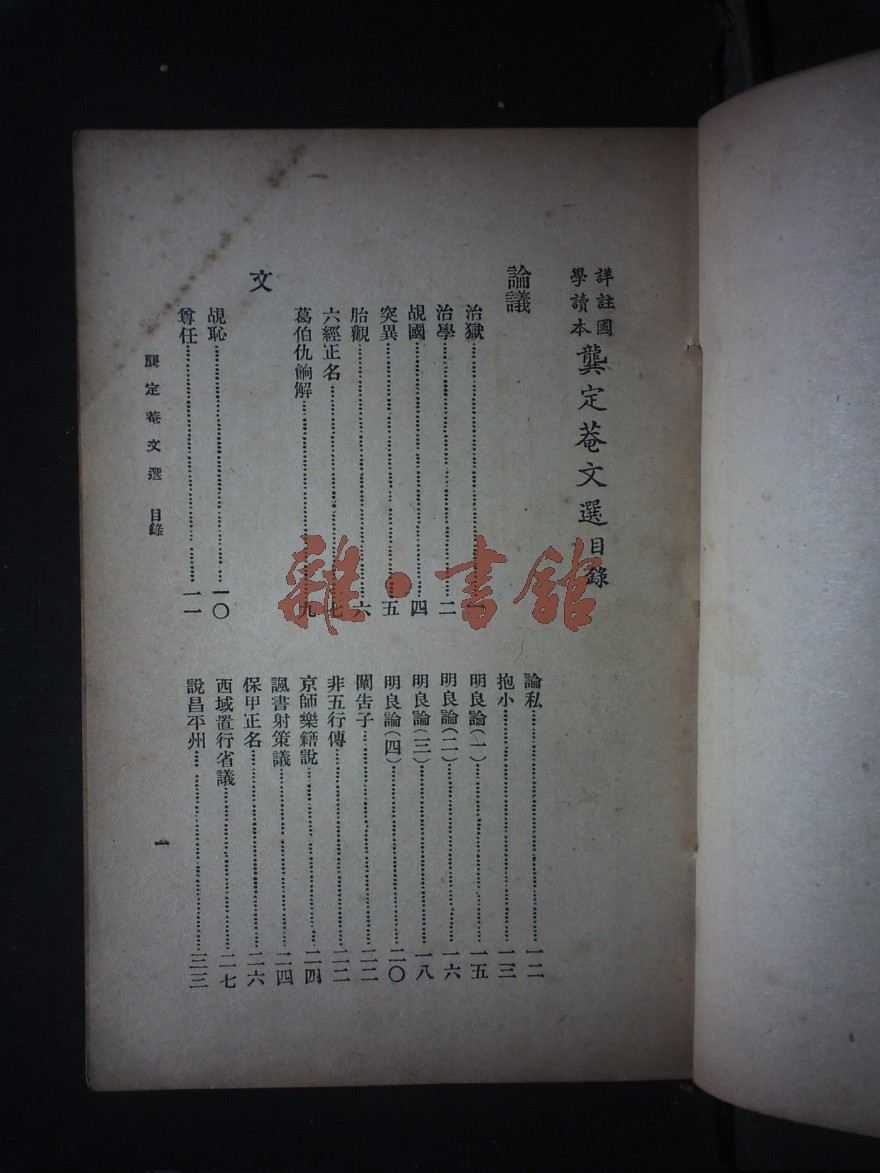 詳註國學讀本 龔定菴文選目錄
論議
治獄 一
治學 二
覘國 四
突異 五
胎觀 六
六經正名 七
葛伯仇餉解 九
文
覘恥 一〇
尊任 一一
論私 一二
抱小 一三
明良論(一) 一五
明良論(二) 一六
明良論(三) 一八
明良論(四) 二〇
闡告子 二二
非五行傳 二二
京師樂籍說 二四
諷書射策議 二四
保甲正名 二六
西域置行省議 二七
說昌平州 三三
龔定菴文選 目錄
一
雜·書館